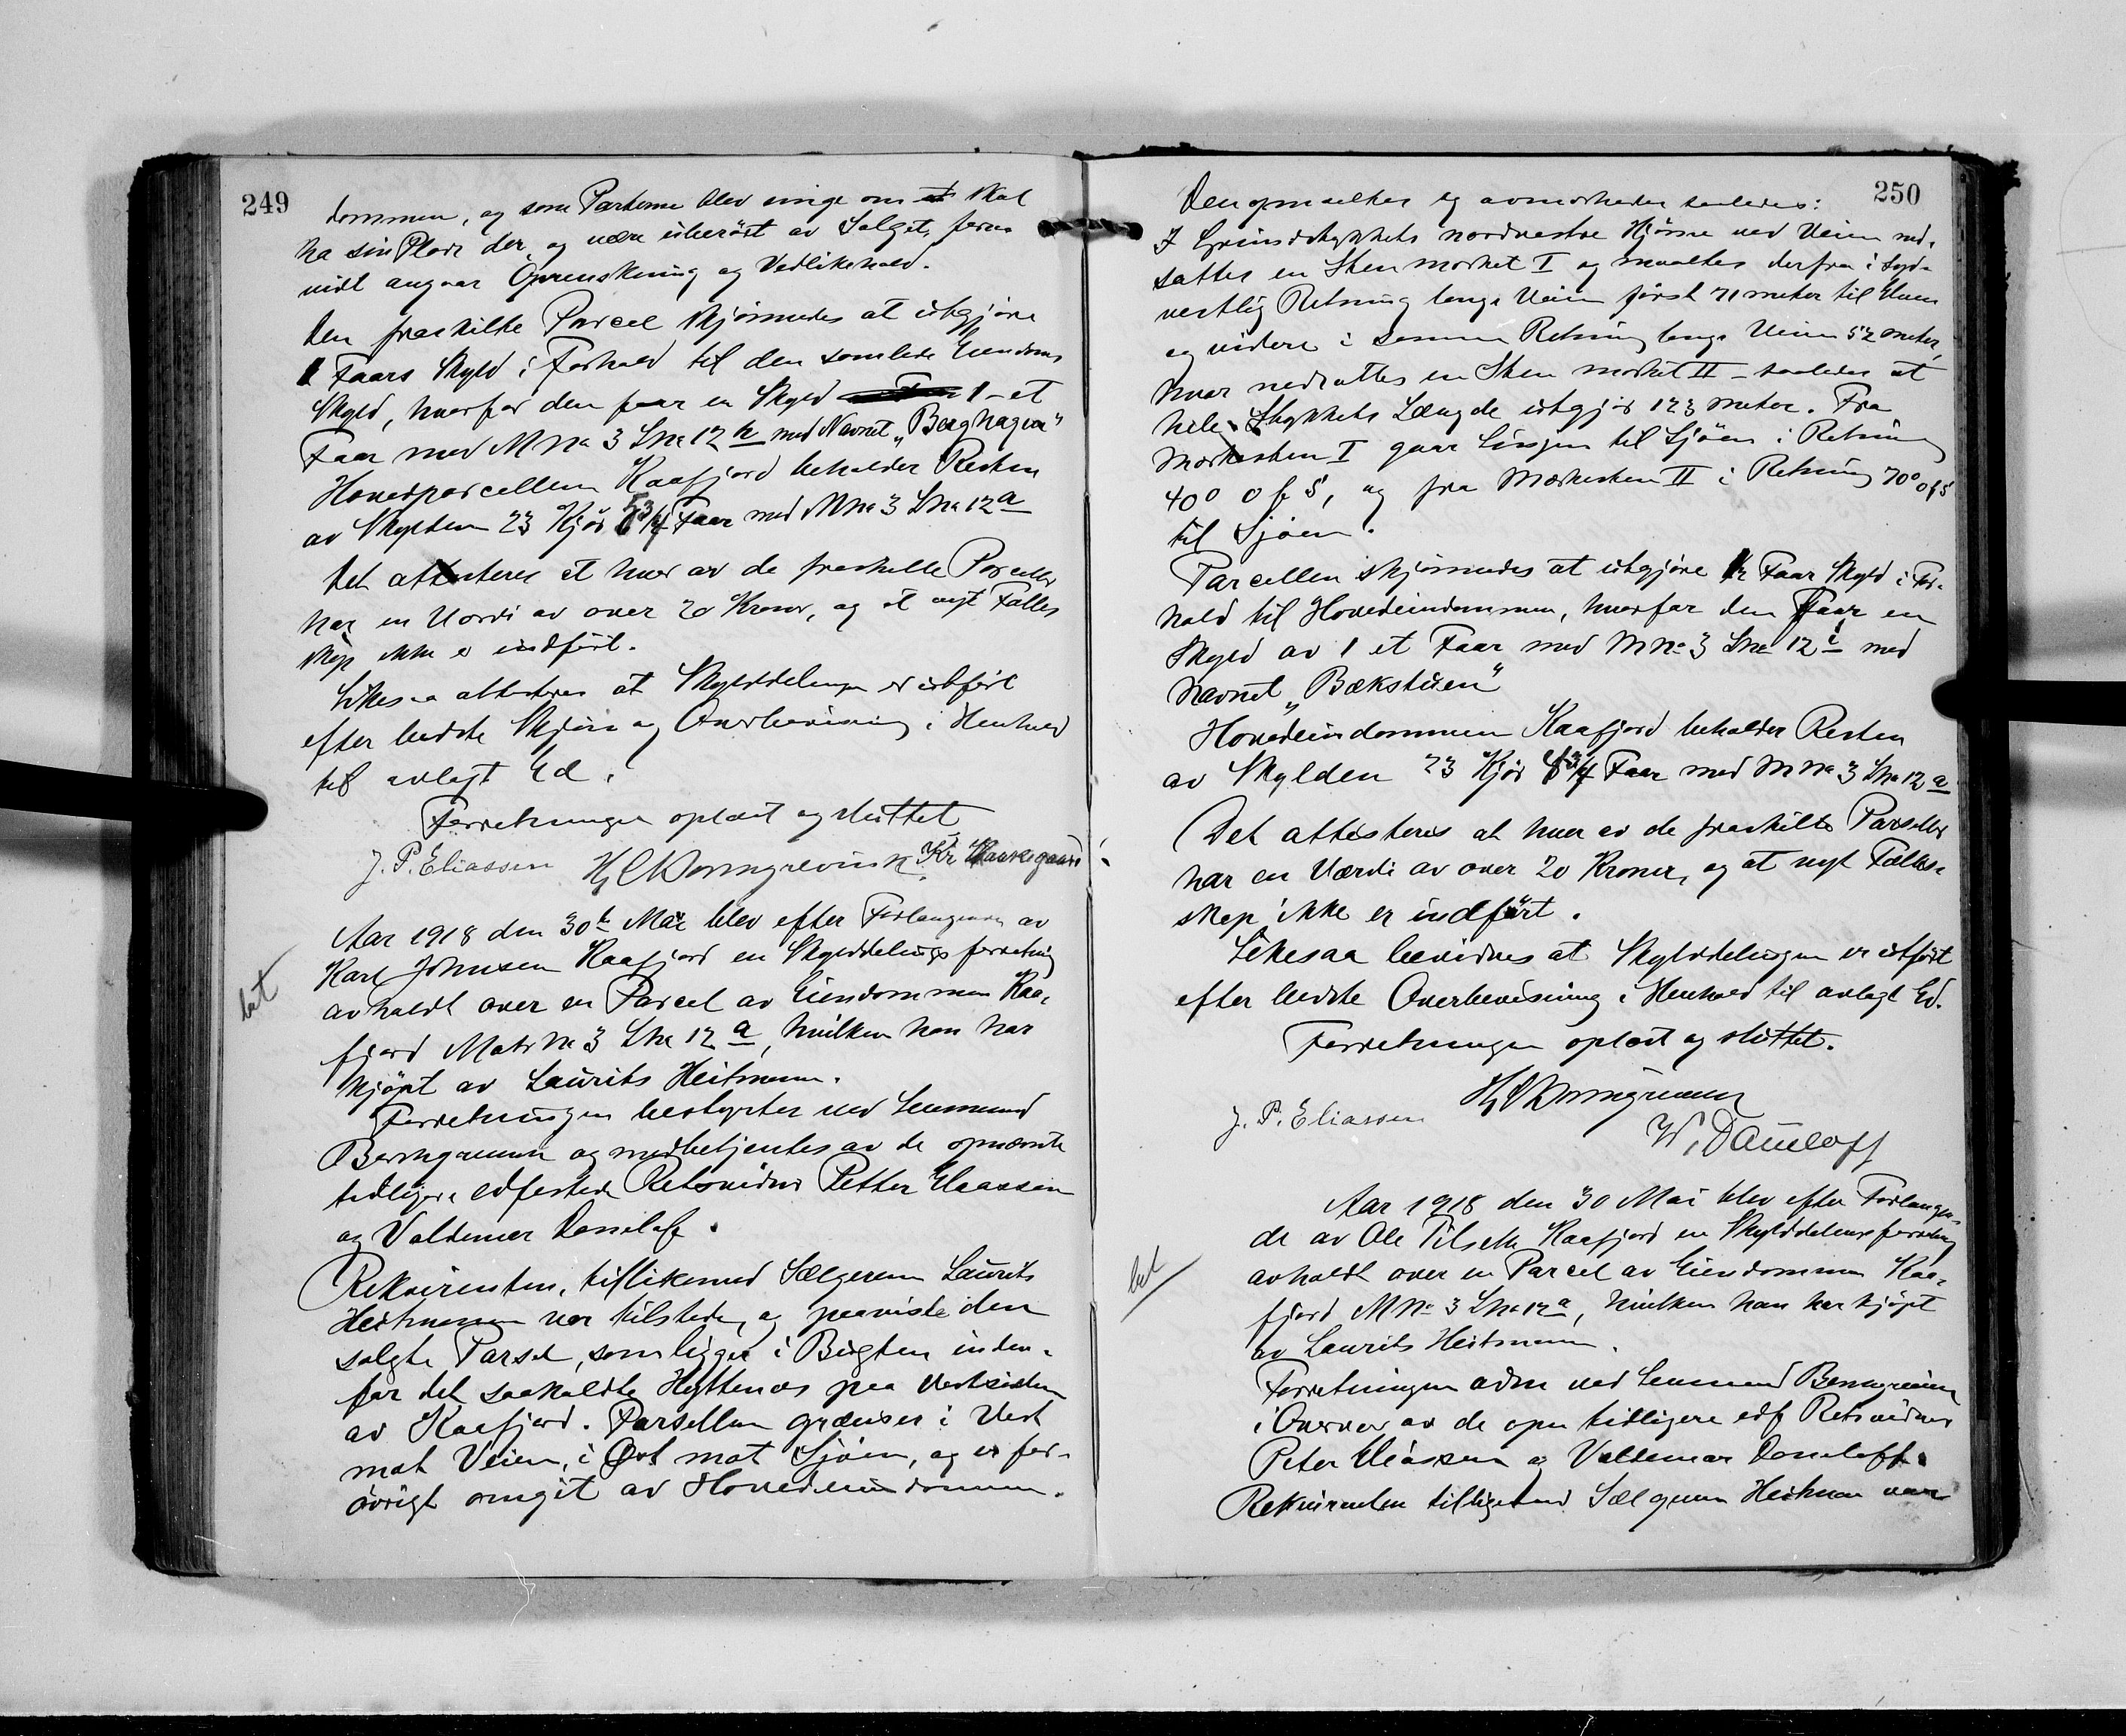 249
dommen, og som Parterne blev enige om at skal
ha sin Plads der, og være uberört av Salget, forsaa
vidt angaar Oprenskning og Vedlikehold.
Den fraskilte Parcel skjönnedes at utgjöre
1 Faars Skyld i Forhold til den samlede Eiendoms
Skyld, hvorfor den faar en Skyld 1 - et
Faar med M No 3 L No 12 h med Navnet "Berghagen"
Hovedparcellen Kaafjord beholder Resten
av Skylden 23 Kjör 5 3/4 Faar med M No 3 L No 12 a
Det attesteres at hver av de fraskilte Parceller
har en Værdi av over 20 Kroner, og at nyt Fælles
skap ikke er indfört.
Likesaa attesteres at Skylddelingen er utfört
efter bedste Skjön og Overbevisning i Henhold
til avlagt Ed.
Forretningen oplæst og sluttet
J. P. Eliassen Kr
Aar 1918 den 30te Mai blev efter Forlangende av
Karl Johnsen Kaafjord en Skylddelingsforretning
avholdt over en Parcel av Eiendommen Kaa-
fjord Matr No 3 L No 12 a, hvilken han har
kjöpt av Laurits Heitmann.
Forretningen bestyrtes ved Lensmand
og medbetjentes av de opnævnte
tidligere edfestede Retsvidner Petter Eliassen
og Valdemar Daniloff.
Rekvirenten, tillikemed Sælgeren Laurits
Heitmann var tilstede, og paaviste den
solgte Parsel, som ligger i Bugten inden-
for det saakaldte Hyttenes paa Vestsiden
av Kaafjord. Parsellen grænser i Vest
mot Veien, i Øst mot Sjöen, og er for-
övrigt omgit av Hovedeiendommen.
250
Den opmaaltes og avmerkedes saaledes:
I Grundstykkets nordvestre Hjörne ved Veien ned-
sattes en Sten merket I og maaltes derfra i syd-
vestlig Retning langs Veien först 71 meter til
og videre i samme Retning langs Veien 52 meter,
hvor nedsattes en Sten merket II - saaledes at
hele Stykkets Længde utgjör 123 meter. Fra
Merkesten I gaar Linjen til Sjöen i Retning
40° O f S, og fra Merkesten II i Retning 70° O f S
til Sjöen.
Parcellen skjönnedes at utgjöre Faar Skyld i For-
hold til Hovedeiendommen, hvorfor den faar en
Skyld av 1 et Faar med M No 3 L No 12 i med
Navnet "Bækstuen"
Hovedeiendommen Kaafjord beholder Resten
av Skylden 23 Kjör 3/4 Faar med M No 3 L No 12 a
Det attesteres at hver av de fraskilte Parseller
har en Værdi av over 20 Kroner, og at nyt Fælles-
skap ikke er indfört.
Likesaa bevidnes at Skylddelingen er utfört
efter bedste Overbevisning i Henhold til avlagt Ed.
Forretningen oplæst og sluttet.
J. P. Eliassen
W. Daniloff
Aar 1918 den 30 Mai blev efter Forlangen-
de av Ole Pilseth Kaafjord en Skylddelingsforretning
avholdt over en Parcel av Eiendommen Kaa-
fjord M No 3 L No 12 a, hvilken han har kjöpt
av Laurits Heitmann.
Forretningen adm ved Lensmand
i Overvær av de opn tidligere edf Retsvidner
Peter Eliassen og Valdemar Daniloff.
Rekvirenten tilligemed Sælgeren Heitman var